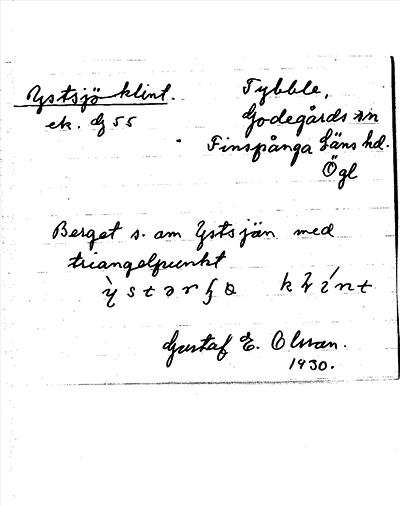 Ystsjö klint.
ek. G 55
Tybble,
Godegårds sn
Finspånga läns hd.
Ögl
Berget s. om Ystsjön med
triangelpunkt
Gustaf E. Olsson.
1930.